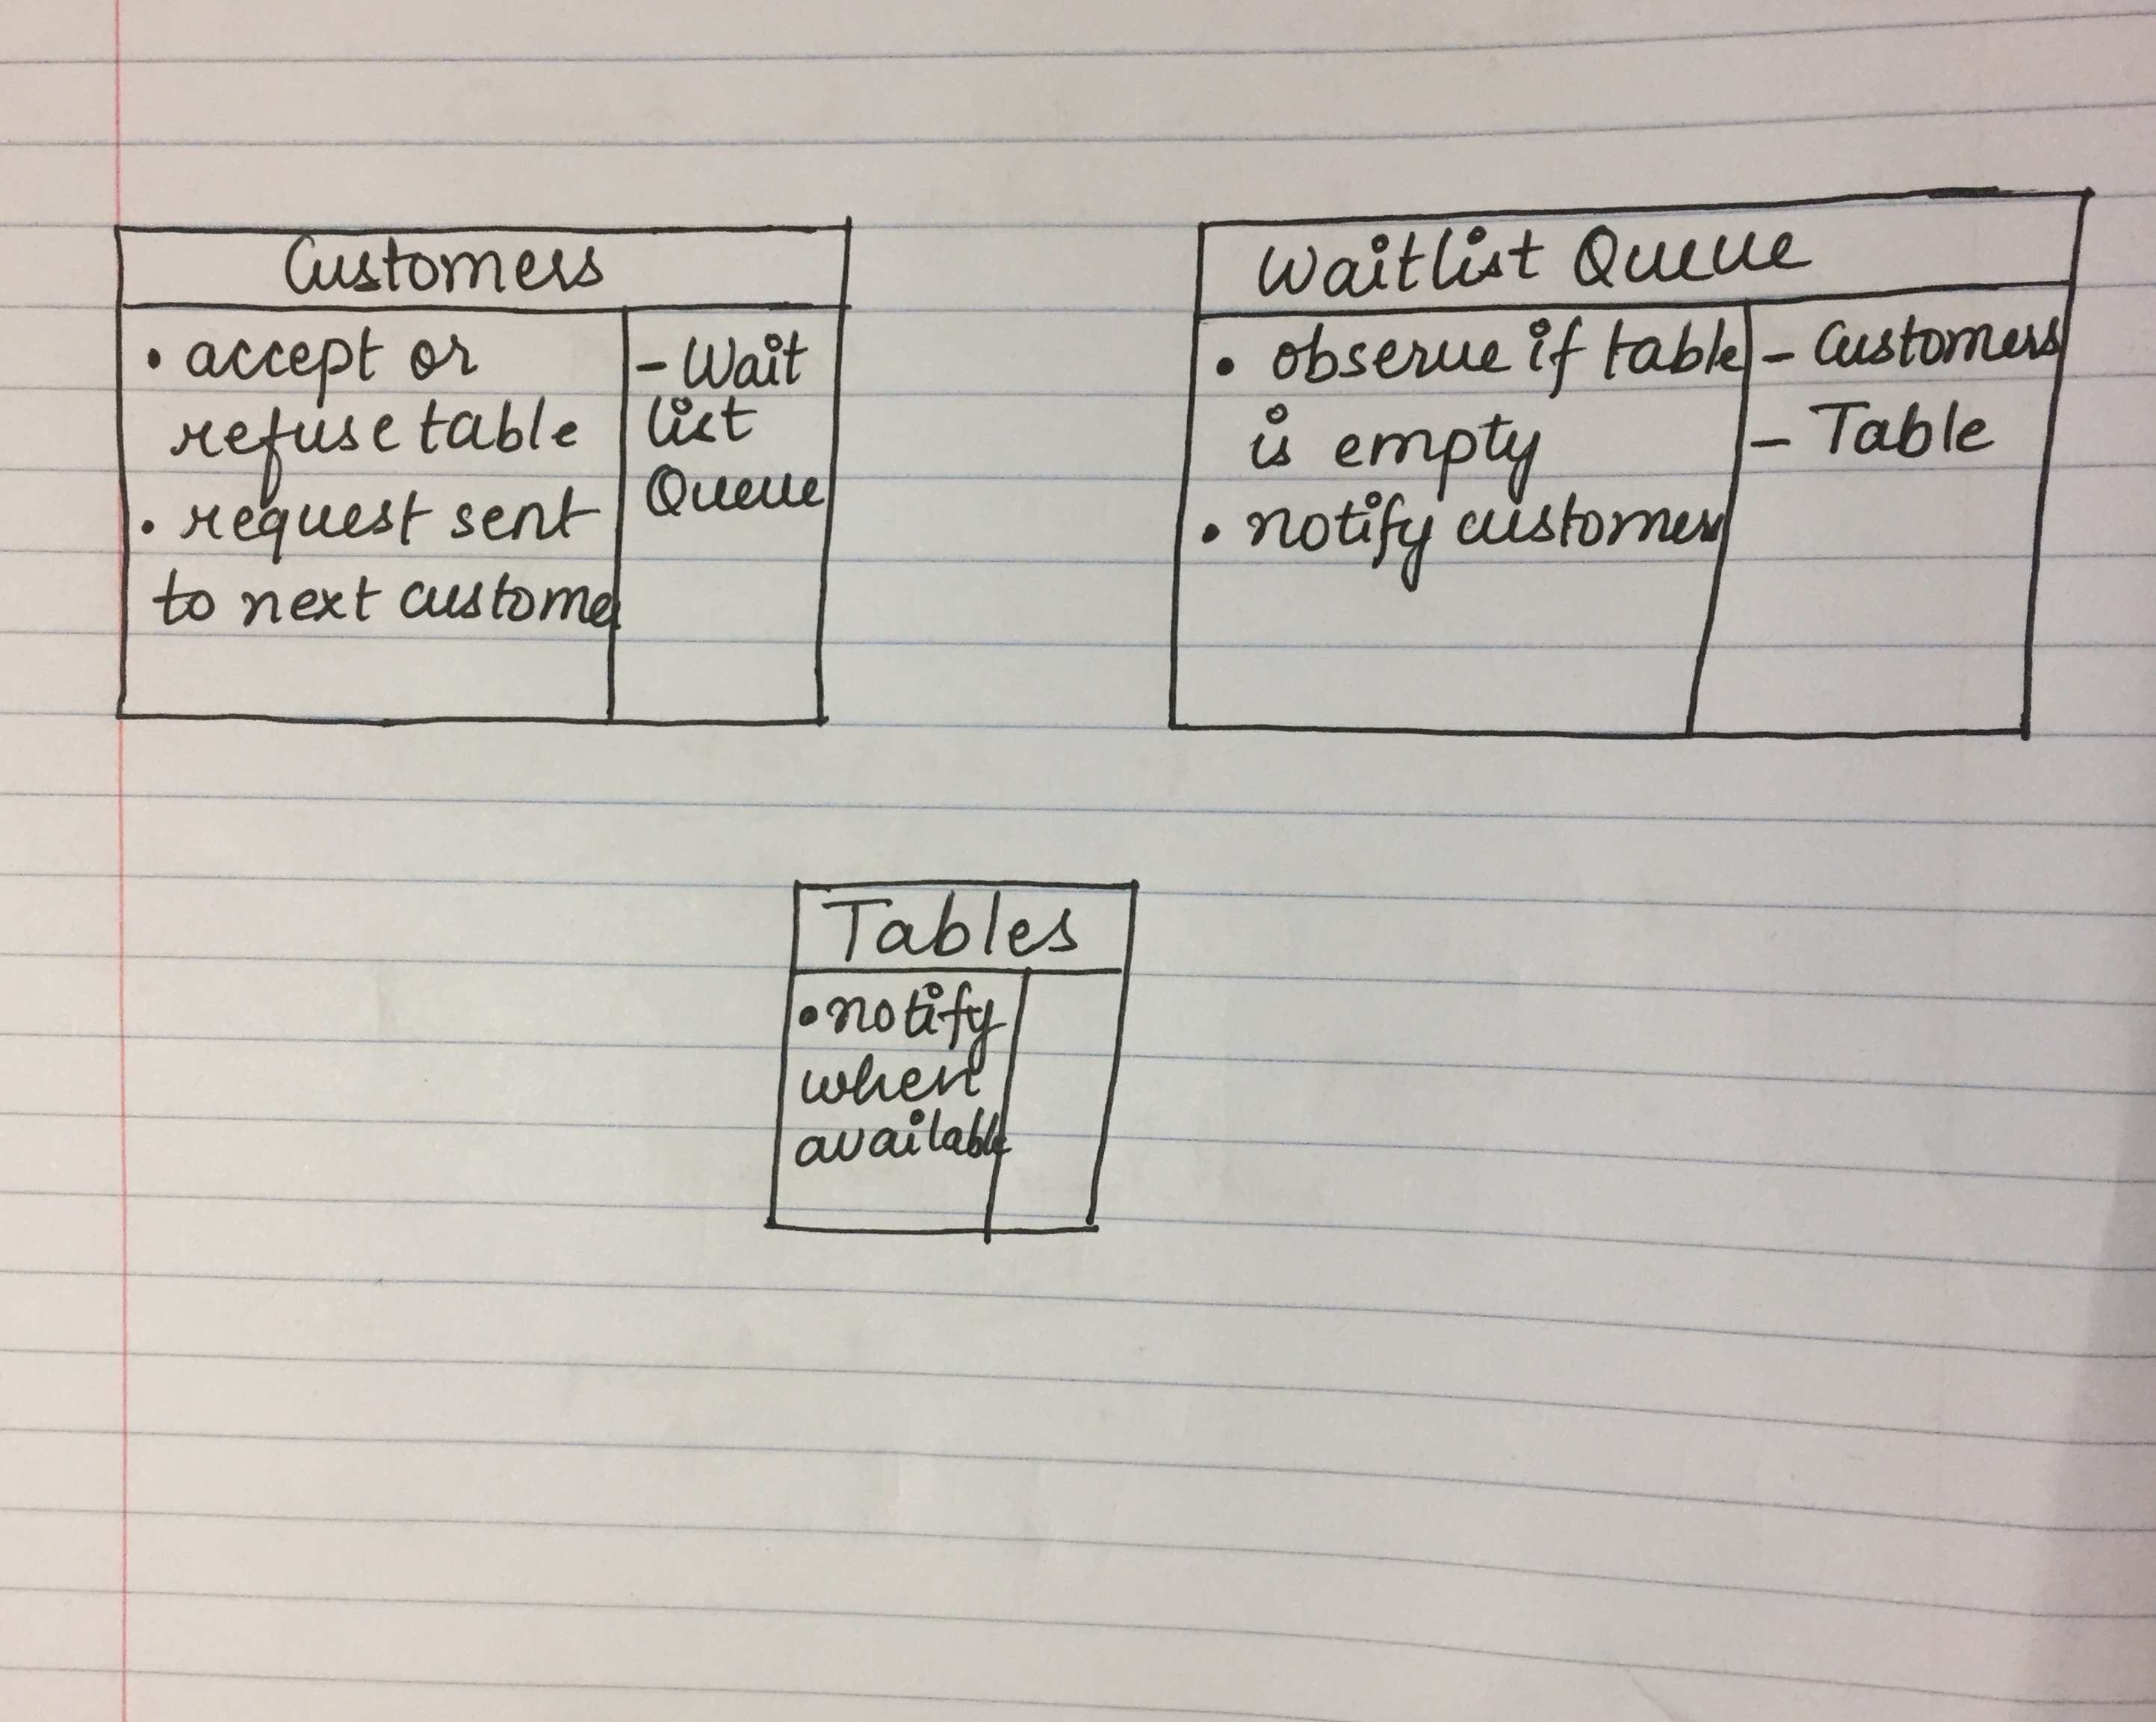 Customers
• accept or
refuse table
• request sent
to next custome
- Wait
list
Queue
Waitlist Queue
• observe if table
is empty
• notify customer
- Customers
- Table
Tables
• notify
when
available